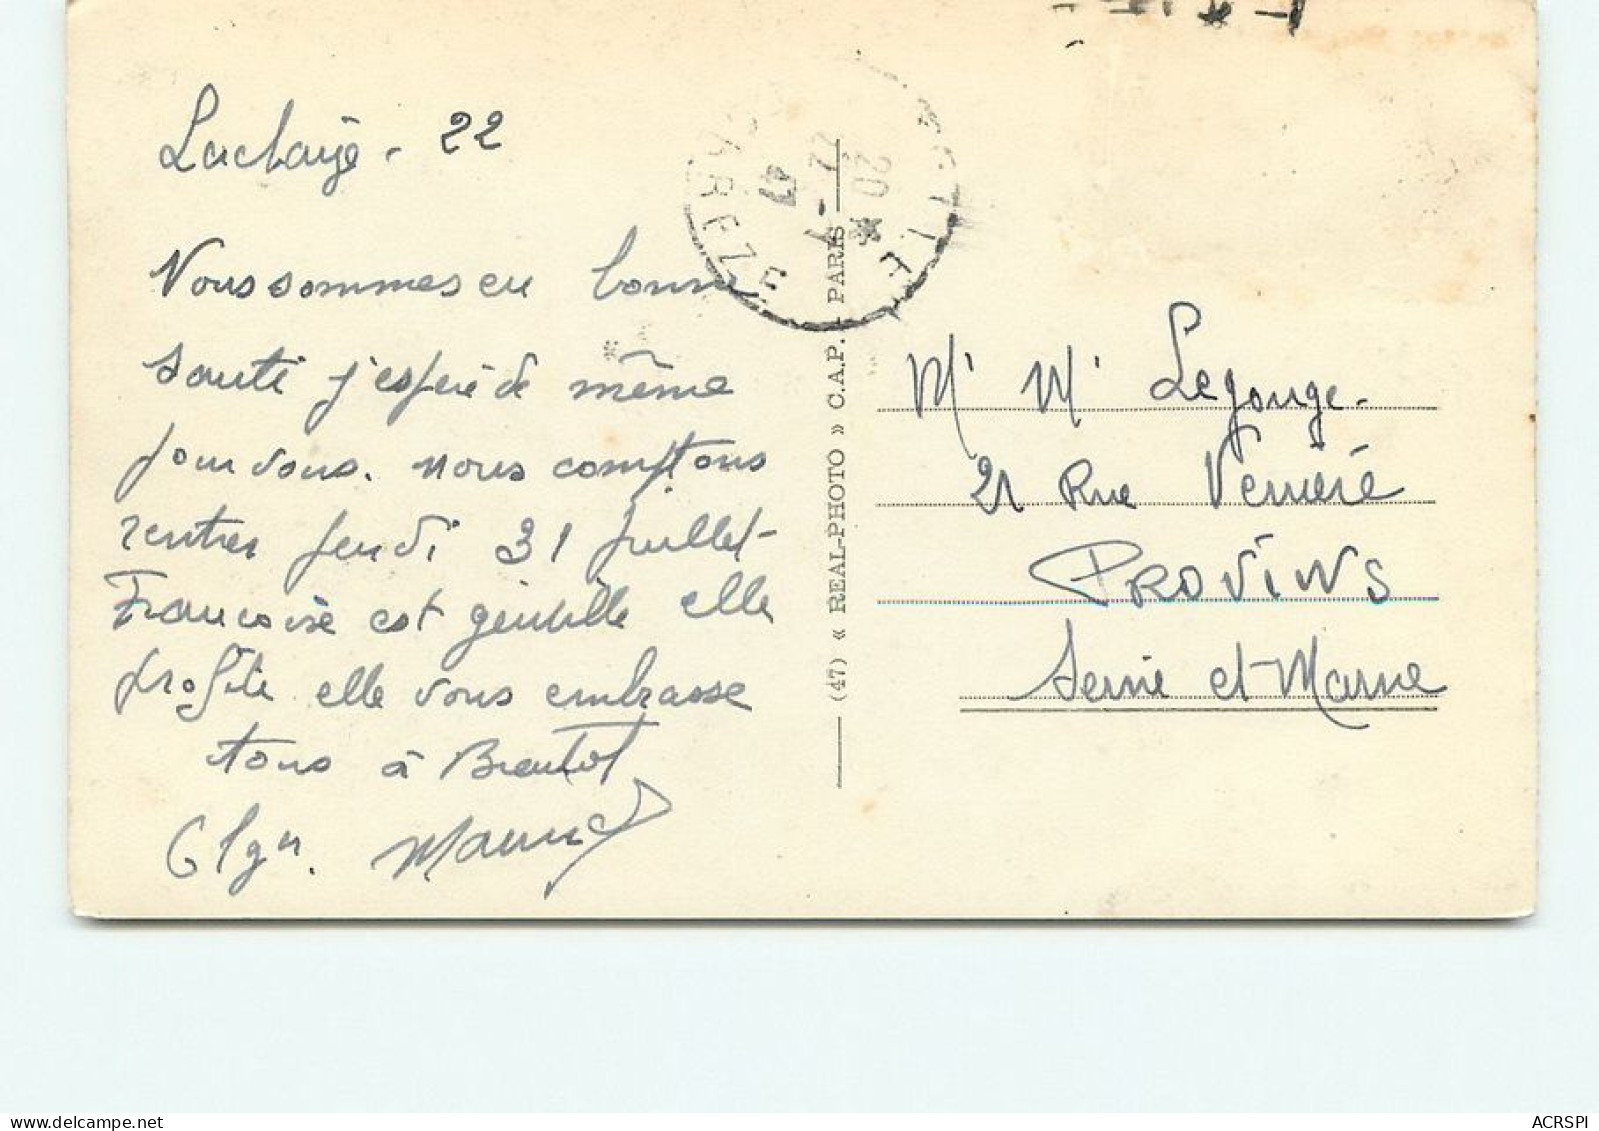 Lachaize - 22
Nous sommes en bonne
santé j'espère de même
pour vous. nous comptons
rentrer jeudi 31 juillet-
Françoise est gentille elle
profite elle vous embrasse
tous à Bientot
Maurice
CORREZE
20 *
22 - 7
47
(47) « REAL-PHOTO » C.A.P. - PARIS
Mr Mr Lejonge.
21 Rue Verrière
PROVINS
Seine et Marne
ACRSPI